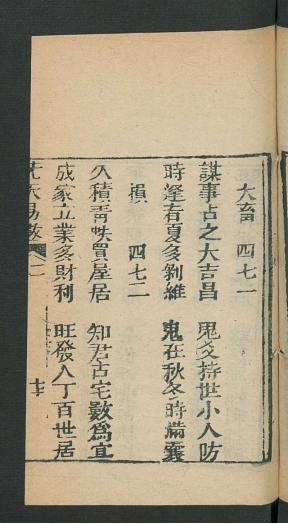 大畜 四七二
謀事占之大吉昌 鬼爻持世小人防
時逢春夏多剝雜 鬼在秋冬時滿囊
損 四七二
久積青蚨買屋居 知君占宅數為宜
成家立業多財利 旺發人丁百世居
先天易數 二